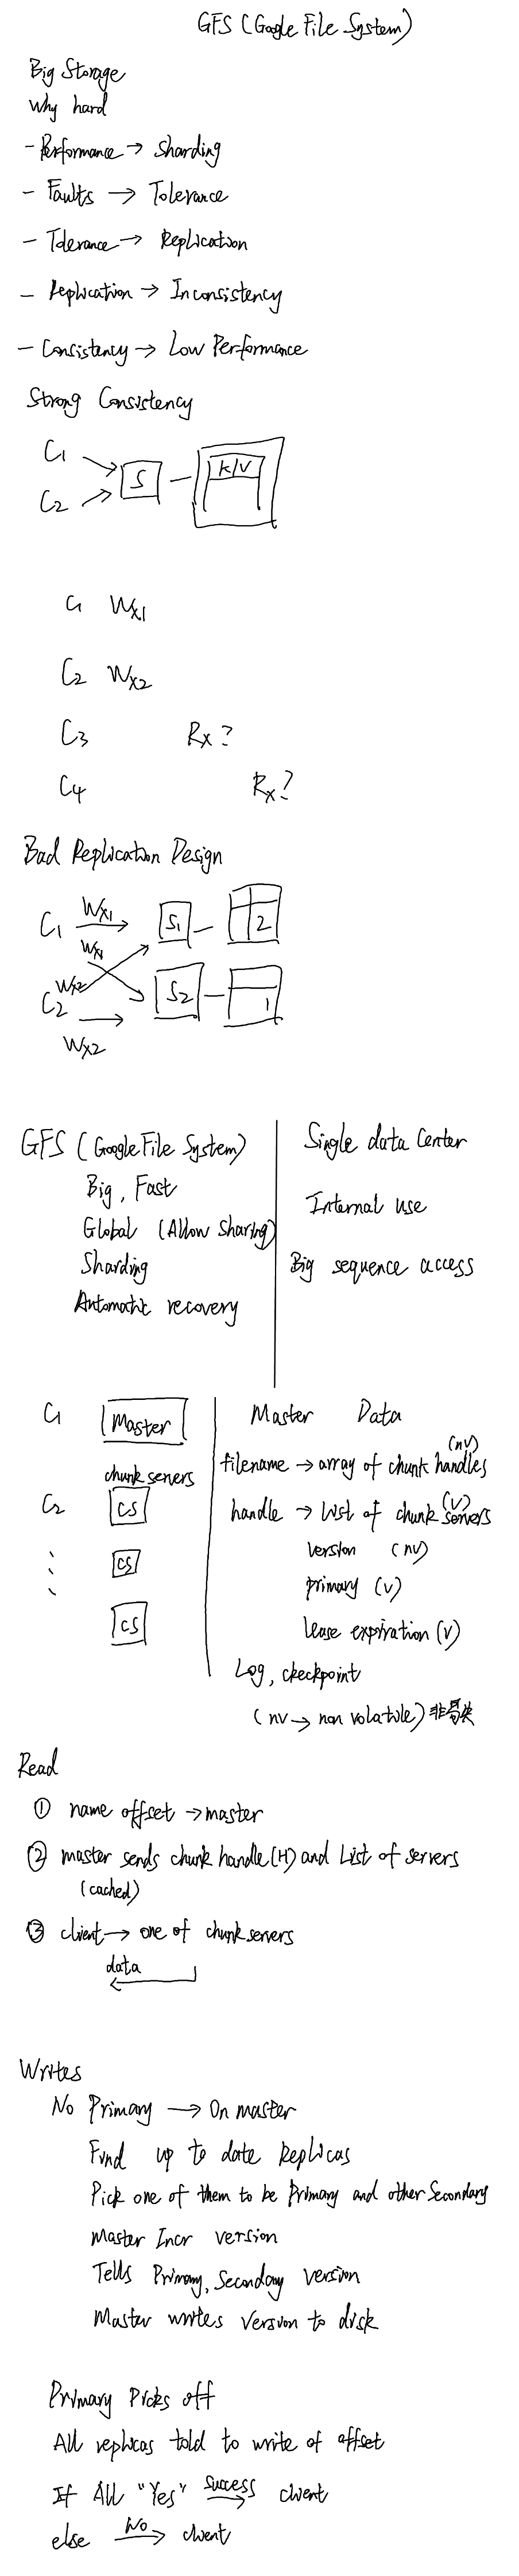 GFS (Google File System)
Big Storage
Why hard
- Performance → Sharding
- Faults → Tolerance
- Tolerance → Replication
- Replication → Inconsistency
- Consistency → Low Performance
Strong Consistency
C1
C2
S
K/V
C1 Wx1
C2 Wx2
C3 Rx?
C4 Rx?
Bad Replication Design
C1 Wx1 S1 2
Wx1
Wx2
C2 S2 1
Wx2
GFS (Google File System)
Big, Fast
Global (Allow Sharing)
Sharding
Automatic recovery
Single data Center
Internal use
Big sequence access
C1 Master
chunk servers
C2 CS
CS
CS
Master Data
filename → array of chunk handles (nv)
handle → List of chunk servers (v)
version (nv)
primary (v)
lease expiration (v)
Log, checkpoint
(nv → non volatile) 非易失
Read
① name offset → master
② master sends chunk handle (H) and List of servers
(cached)
③ client → one of chunk servers
data
Writes
No Primary → On master
Find up to date Replicas
Pick one of them to be Primary and other Secondary
Master Incr version
Tells Primary, Secondary version
Master writes Version to disk
Primary Picks off
All replicas told to write of offset
If All "Yes" success → client
else No → client